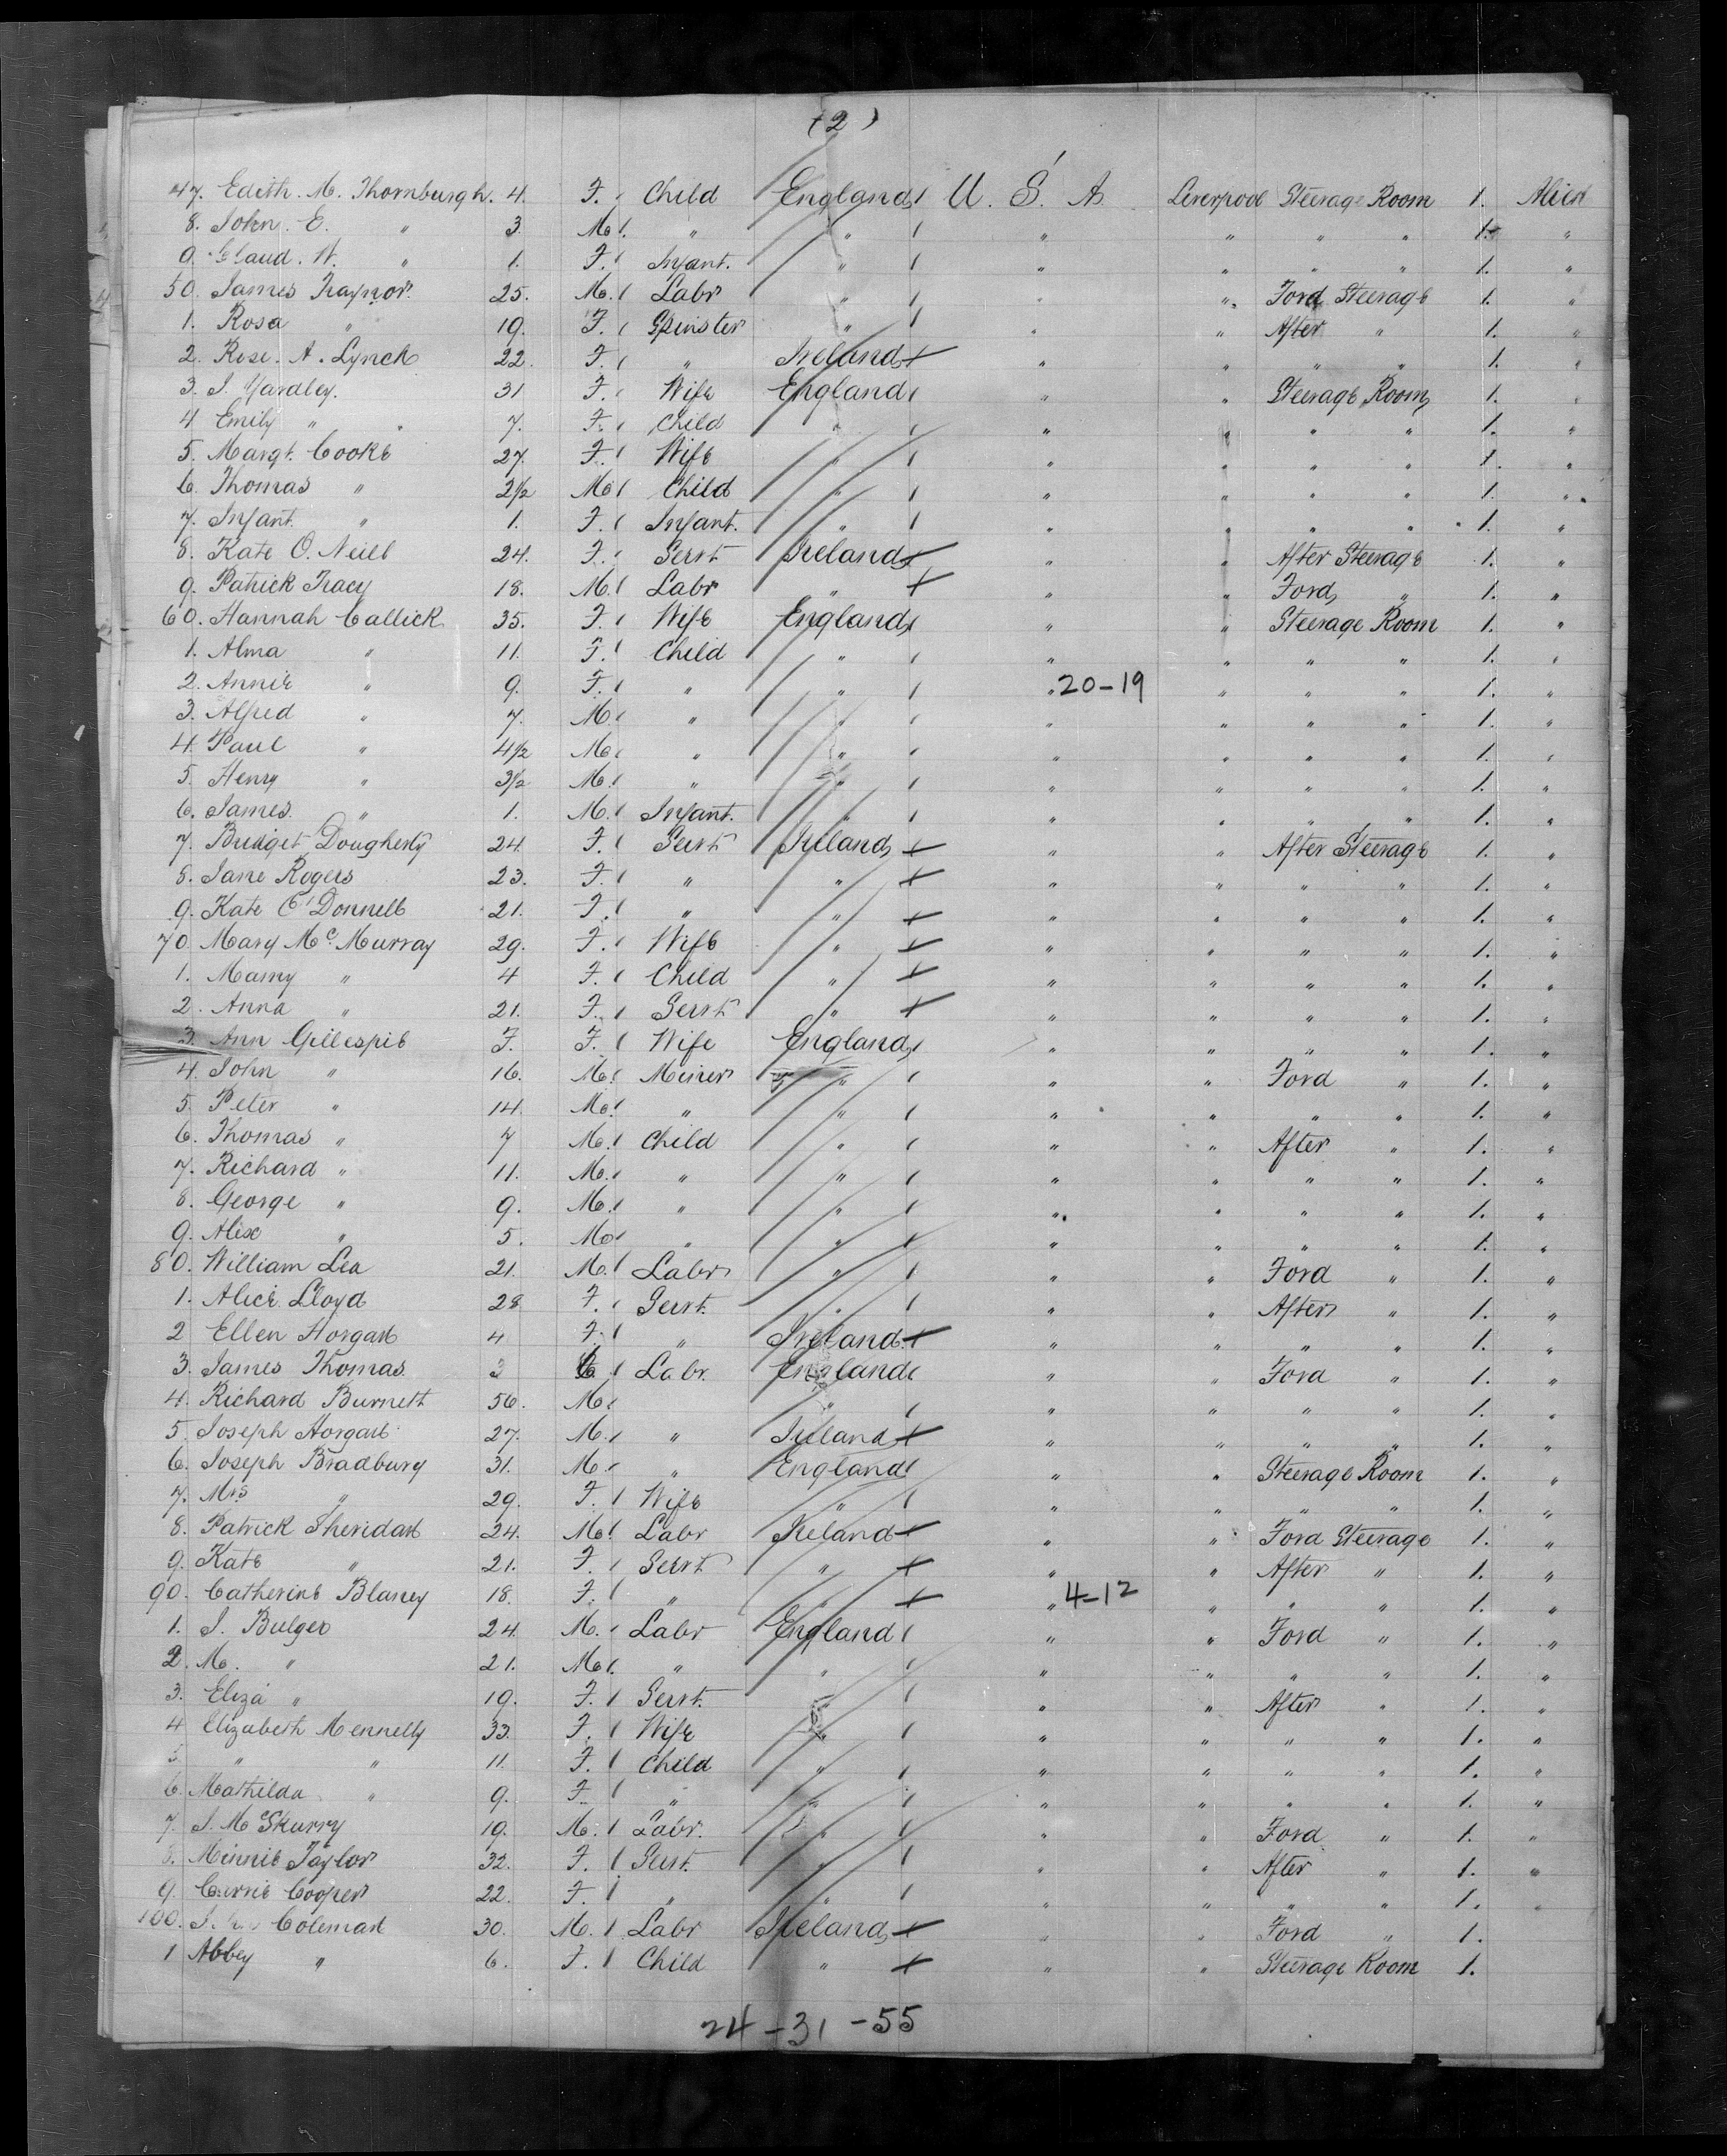 (2)
47. Edith. M. Thornburgh. 4. F. Child England U. S. A. Liverpool Steerage Room 1. Alien
8. John. E. " 3. M. " " " " " " 1. "
9. Claud. W. " 1. F. Infant. " " " " " 1. "
50. James Traynor. 25. M. Labr " " " Ford Steerage 1. "
1. Rosa " 19. F. Spinster " " " After " 1. "
2. Rose. A. Lynch 22. F. " Ireland " " " " 1. "
3. J. Yardley. 31 F. Wife England " " Steerage Room 1. "
4 Emily " 7. F. Child " " " " " 1. "
5. Margt. Cooke 27. F. Wife " " " " " 1. "
6. Thomas " 2½ M. Child " " " " " 1. "
7. Infant. " 1. F. Infant. " " " " " 1. "
8. Kate O. Neill 24. F. Servt Ireland " " After Steerage 1. "
9. Patrick Tracy 18. M. Labr " " " Ford " 1. "
60. Hannah Callick 35. F. Wife England " " Steerage Room 1. "
1. Alma " 11. F. Child " " " " " 1. "
2. Annie " 9. F. " " " 20-19 " " " 1. "
3. Alfred " 7. M. " " " " " " 1. "
4. Paul " 4½ M. " " " " " " 1. "
5. Henry " 3½ M. " " " " " " 1. "
6. James. " 1. M. Infant. " " " " " 1. "
7. Bridget Dougherty 24. F. Servt Ireland " " After Steerage 1. "
8. Jane Rogers 23. F. " " " " " " 1. "
9. Kate O'Donnell 21. F. " " " " " " 1. "
70. Mary McMurray 29. F. Wife " " " " " 1. "
1. Mamy " 4 F. Child " " " " " 1. "
2. Anna " 21. F. Servt " " " " " 1. "
3. Ann Gillespie F. F. Wife England " " " " 1. "
4. John " 16. M. Miner " " " Ford " 1. "
5. Peter " 14. M. " " " " " " 1. "
6. Thomas " 7 M. Child " " " After " 1. "
7. Richard " 11. M. " " " " " " 1. "
8. George " 9. M. " " " " " " 1. "
9. Alex " 5. M. " " " " " " 1. "
80. William Lea 21. M. Labr " " " Ford " 1. "
1. Alice Lloyd 28 F. Servt. " " " After " 1. "
2 Ellen Horgan 4 F. " Ireland " " " " 1. "
3. James Thomas. Labr. England " " Ford " 1. "
4. Richard Burnett 56. M. " " " " " 1. "
5. Joseph Horgan 27. M. " Ireland " " " " 1. "
6. Joseph Bradbury 31. M. " England " " Steerage Room 1. "
7. Mrs " 29. F. Wife " " " " " 1. "
8. Patrick Sheridan 24. M. Labr Ireland " " Ford Steerage 1. "
9. Kate " 21. F. Servt " " " After " 1. "
90. Catherine Blaney 18. F. " " " 4-12 " " " 1. "
1. J. Bulger 24. M. Labr England " " Ford " 1. "
2. M. " 21. M. " " " " " " 1. "
3. Eliza " 19. F. Servt. " " " After " 1. "
4 Elizabeth Mennelly 33. F. Wife " " " " " 1. "
5. " " 11. F. Child " " " " " 1. "
6. Mathilda " 9. F. " " " " " " 1. "
7. J. McSkurry 19. M. Labr. " " " Ford " 1. "
8. Minnie Taylor 32. F. Servt. " " " After " 1. "
9. Carrie Cooper 22. F. " " " " " " 1. "
100. Coleman 30. M. Labr Ireland " " Ford " 1.
1 Abbey " 6. F. Child " " " Steerage Room 1.
24-31-55